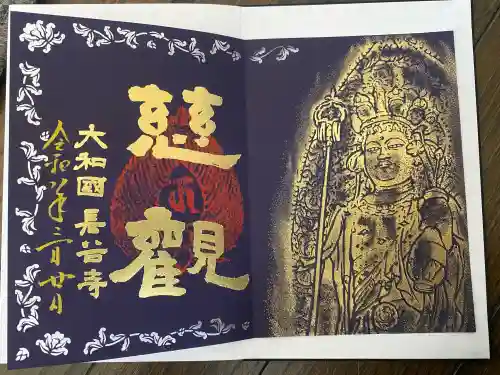 慈
觀
大和國 長谷寺
令和八年 二月 廿日